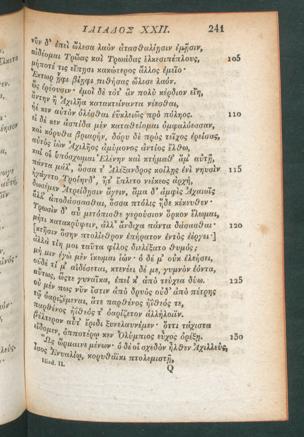 ΙΛΙΑΔΟΣ XXII. 241
νῦν δ' ἐπεὶ ὤλεσα λαὸν ἀτασθαλίῃσιν ἐμῇσιν,
αἰδέομαι Τρῶας καὶ Τρωάδας ἑλκεσιπέπλους, 105
μήποτέ τις εἴπῃσι κακώτερος ἄλλος ἐμεῖο·
Ἕκτωρ ἧφι βίηφι πιθήσας ὤλεσε λαόν.
ὣς ἐρέουσιν· ἐμοὶ δὲ τότ' ἂν πολὺ κέρδιον εἴη,
ἄντην ἢ Ἀχιλῆα κατακτείναντα νέεσθαι,
ἠέ κεν αὐτὸν ὀλέσθαι ἐϋκλειῶς πρὸ πόληος. 110
εἰ δέ κεν ἀσπίδα μὲν καταθείομαι ὀμφαλόεσσαν,
καὶ κόρυθα βριαρήν, δόρυ δὲ πρὸς τεῖχος ἐρείσας,
αὐτὸς ἰὼν Ἀχιλῆος ἀμύμονος ἀντίος ἔλθω,
καί οἱ ὑπόσχωμαι Ἑλένην καὶ κτήμαθ' ἅμ' αὐτῇ,
πάντα μάλ', ὅσσα τ' Ἀλέξανδρος κοίλῃς ἐνὶ νηυσὶν 115
ἠγάγετο Τροίηνδ', ἥτ' ἔπλετο νείκεος ἀρχή,
δωσέμεν Ἀτρείδῃσιν ἄγειν, ἅμα δ' ἀμφὶς Ἀχαιοῖς
ἄλλ' ἀποδάσσασθαι, ὅσσα πτόλις ἥδε κέκευθεν·
Τρωσὶν δ' αὖ μετόπισθε γερούσιον ὅρκον ἕλωμαι,
μήτι κατακρύψειν, ἀλλ' ἄνδιχα πάντα δάσασθαι· 120
[κτῆσιν ὅσην πτολίεθρον ἐπήρατον ἐντὸς ἐέργει·]
ἀλλὰ τίη μοι ταῦτα φίλος διελέξατο θυμός;
μή μιν ἐγὼ μὲν ἵκωμαι ἰών· ὁ δέ μ' οὐκ ἐλεήσει,
οὐδέ τί μ' αἰδέσεται, κτενέει δέ με, γυμνὸν ἐόντα,
αὔτως, ὥστε γυναῖκα, ἐπεί κ' ἀπὸ τεύχεα δύω. 125
οὐ μέν πως νῦν ἔστιν ἀπὸ δρυὸς οὐδ' ἀπὸ πέτρης
τῷ ὀαριζέμεναι, ἅτε παρθένος ἠΐθεός τε,
παρθένος ἠΐθεός τ' ὀαρίζετον ἀλλήλοιϊν.
βέλτερον αὖτ' ἔριδι ξυνελαυνέμεν· ὅττι τάχιστα
εἴδομεν, ὁπποτέρῳ κεν Ὀλύμπιος εὖχος ὀρέξῃ. 130
Ὣς ὥρμαινε μένων· ὁ δέ οἱ σχεδὸν ἦλθεν Ἀχιλλεύς,
ἶσος Ἐνυαλίῳ, κορυθάϊκι πτολεμιστῇ,
Iliad. II. Q